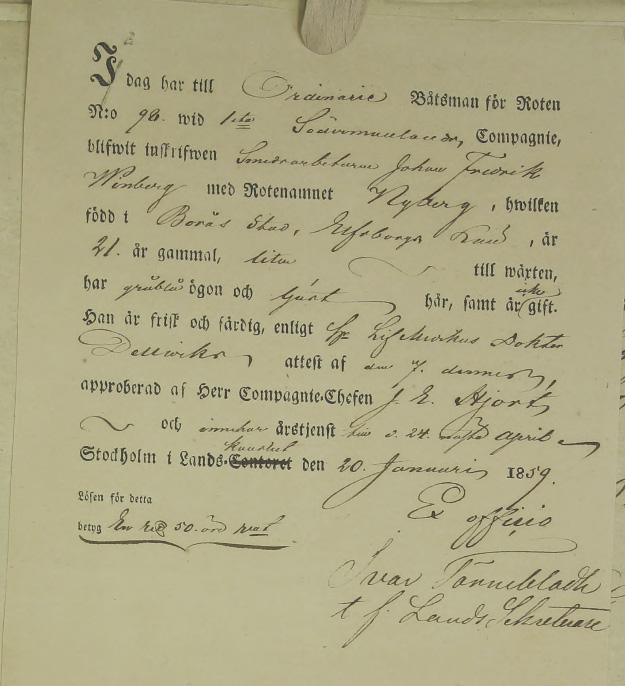 I dag har till Ordinarie Båtsman för Roten
N:o 96. wid 1sta Södermanlands Compagnie,
blifwit inskrifwen Smedarbetaren Johan Fredrik
Winberg med Rotenamnet Nyberg, hwilken
född i Borås Stad, Elfsborgs Län, är
21. år gammal, liten till wäxten,
har gråblå ögon och ljust hår, samt är icke gift.
Han är frisk och färdig, enligt Doktor
Dellwiks attest af den 7. dennes,
approberad af Herr Compagnie-Chefen J. E. Hjort
och innehar årstjenst till d. 24 nästa April
Stockholm i Lands-Contoret kansliet den 20. Januari 1859.
Ex officio
Lösen för detta
betyg En 50. öre
Ivar Tönnebladh
t f. Lands Sekreterare